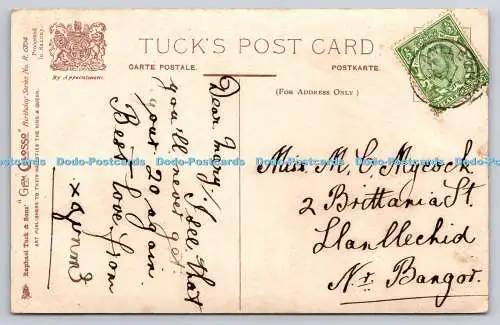 TUCK'S POST CARD
CARTE POSTALE.
POSTKARTE.
(FOR ADDRESS ONLY.)
By Appointment.
Raphael Tuck & Sons' "Gem Glosso" Birthday Series No. R.
ART PUBLISHERS TO THEIR MAJESTIES THE KING & QUEEN.
Dear
I see that
you'll never get
your 20 again.
Best love from
Miss. M. C. Mycock
2 Brittania St.
Llanllechid
Nr. Bangor.
Dodo-Postcards Dodo-Postcards Dodo-Postcards Dodo-Postcards Dodo-Postcards Dodo-Postcards